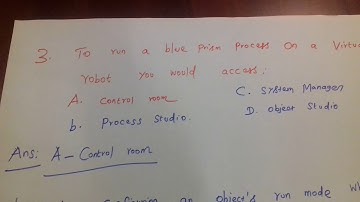 3. To run a blue prism process on a
robot you would access:
A. Control room
C. System Manager
b. Process Studio.
D. Object Studio
Ans: A - Control room
an object's run mode